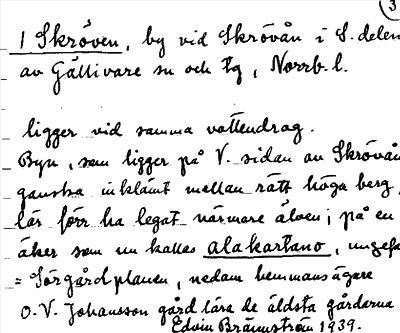 3
1 Skröven, by vid Skrövån i S. delen
av Gällivare sn och tg, Norrb. l.
ligger vid samma vattendrag.
Byn, som ligger på V. sidan av Skrövån
ganska inklämt mellan rätt höga berg,
lär förr ha legat närmare älven; på en
åker som nu kallas alakartano, ungef
= Sörgårdplanen, nedom hemmansägare
O.V. Johansson gård lära de äldsta gårdarna
Edvin Brännström 1939.